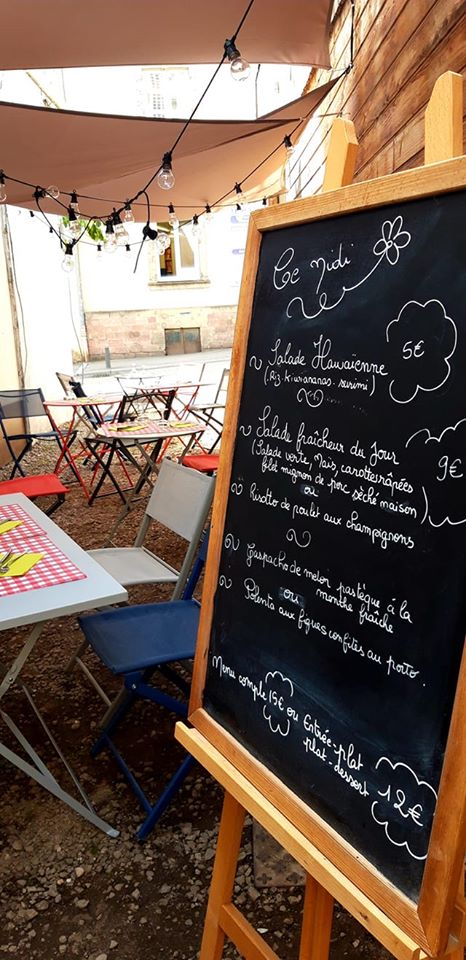 Ce midi
Salade Hawaïenne
(Riz-kiwi ananas. surimi)
5€
Salade fraîcheur du jour
(Salade verte, Maïs, carottes râpées
filet mignon de porc séché maison)
9€
ou
Risotto de poulet aux champignons
Gaspacho de melon pastèque à la
menthe fraîche
ou
Polenta aux figues confites au porto.
Menu complet 15€ ou Entrée-plat
plat-dessert 12€